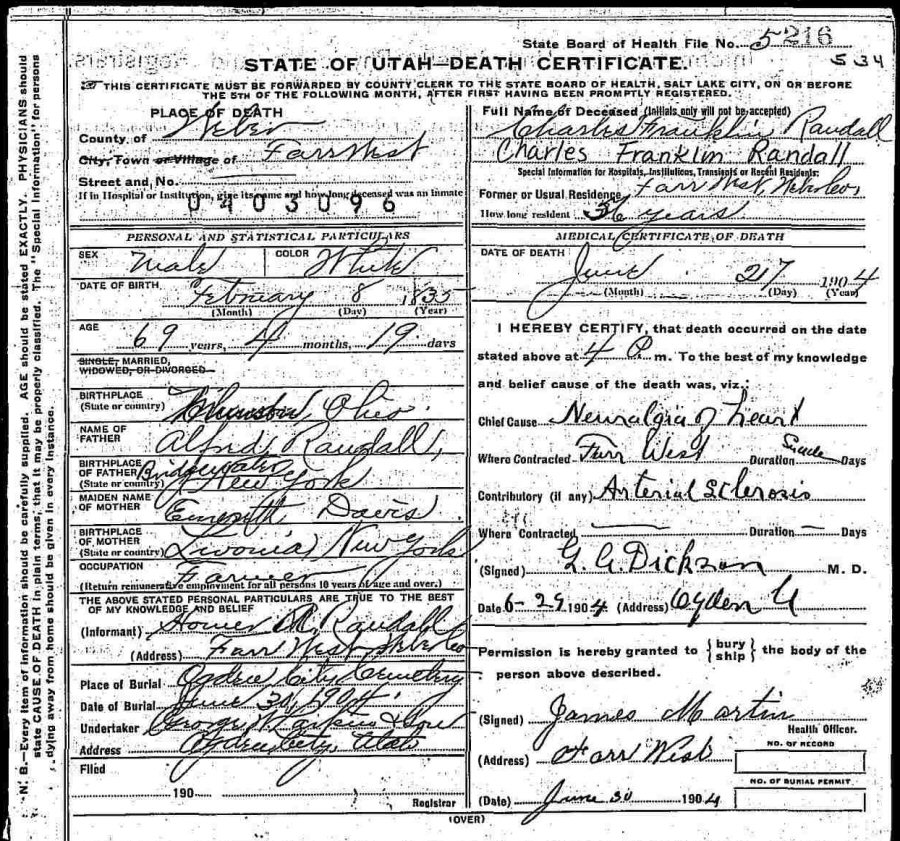 State Board of Health File No. 5216
534
STATE OF UTAH—DEATH CERTIFICATE.
THIS CERTIFICATE MUST BE FORWARDED BY COUNTY CLERK TO THE STATE BOARD OF HEALTH, SALT LAKE CITY, ON OR BEFORE
THE 5TH OF THE FOLLOWING MONTH, AFTER FIRST HAVING BEEN PROMPTLY REGISTERED.
PLACE OF DEATH
County of Weber
City, Town or Village of Farr West
Street and No.
If in Hospital or Institution, give its name and how long deceased was an inmate
0403096
Full Name of Deceased (Initials only will not be accepted)
Charles Franklin Randall
Charles Franklin Randall
Special Information for Hospitals, Institutions, Transients or Recent Residents:
Former or Usual Residence Farr West, Weber Co,
How long resident 36 years
PERSONAL AND STATISTICAL PARTICULARS
SEX Male COLOR White
DATE OF BIRTH
February 8 1835
(Month) (Day) (Year)
AGE
69 years, 4 months, 19 days
SINGLE, MARRIED,
WIDOWED, OR DIVORCED
BIRTHPLACE
(State or country) Ohio.
NAME OF
FATHER Alfred Randall,
BIRTHPLACE
OF FATHER Bridgewater
(State or country) New York
MAIDEN NAME
OF MOTHER Davis
BIRTHPLACE
OF MOTHER
(State or country) Livonia, New York
OCCUPATION
Farmer
(Return remunerative employment for all persons 10 years of age and over.)
THE ABOVE STATED PERSONAL PARTICULARS ARE TRUE TO THE BEST
OF MY KNOWLEDGE AND BELIEF
(Informant) Homer Randall
(Address) Farr West Weber Co
Place of Burial Ogden City Cemetery
Date of Burial June 30, 1904.
Undertaker George W. Larkin & Sons
Address Ogden City, Utah
Filed
190
Registrar
MEDICAL CERTIFICATE OF DEATH
DATE OF DEATH
June 27 1904
(Month) (Day) (Year)
I HEREBY CERTIFY, that death occurred on the date
stated above at 4 m. To the best of my knowledge
and belief cause of the death was, viz.:
Chief Cause Neuralgia of heart
Where Contracted Farr West Duration Days
Contributory (if any) Arterial Sclerosis
Where Contracted — Duration — Days
(Signed) Dickson M. D.
Date 6-29 1904 (Address) Ogden U
Permission is hereby granted to { bury
ship } the body of the
person above described.
(Signed) James Martin
Health Officer.
(Address) Farr West
NO. OF RECORD
NO. OF BURIAL PERMIT
(Date) June 30 1904
(OVER)
N. B.—Every item of information should be carefully supplied. AGE should be stated EXACTLY. PHYSICIANS should
state CAUSE OF DEATH in plain terms, that it may be properly classified. The "Special Information" for persons
dying away from home should be given in every instance.